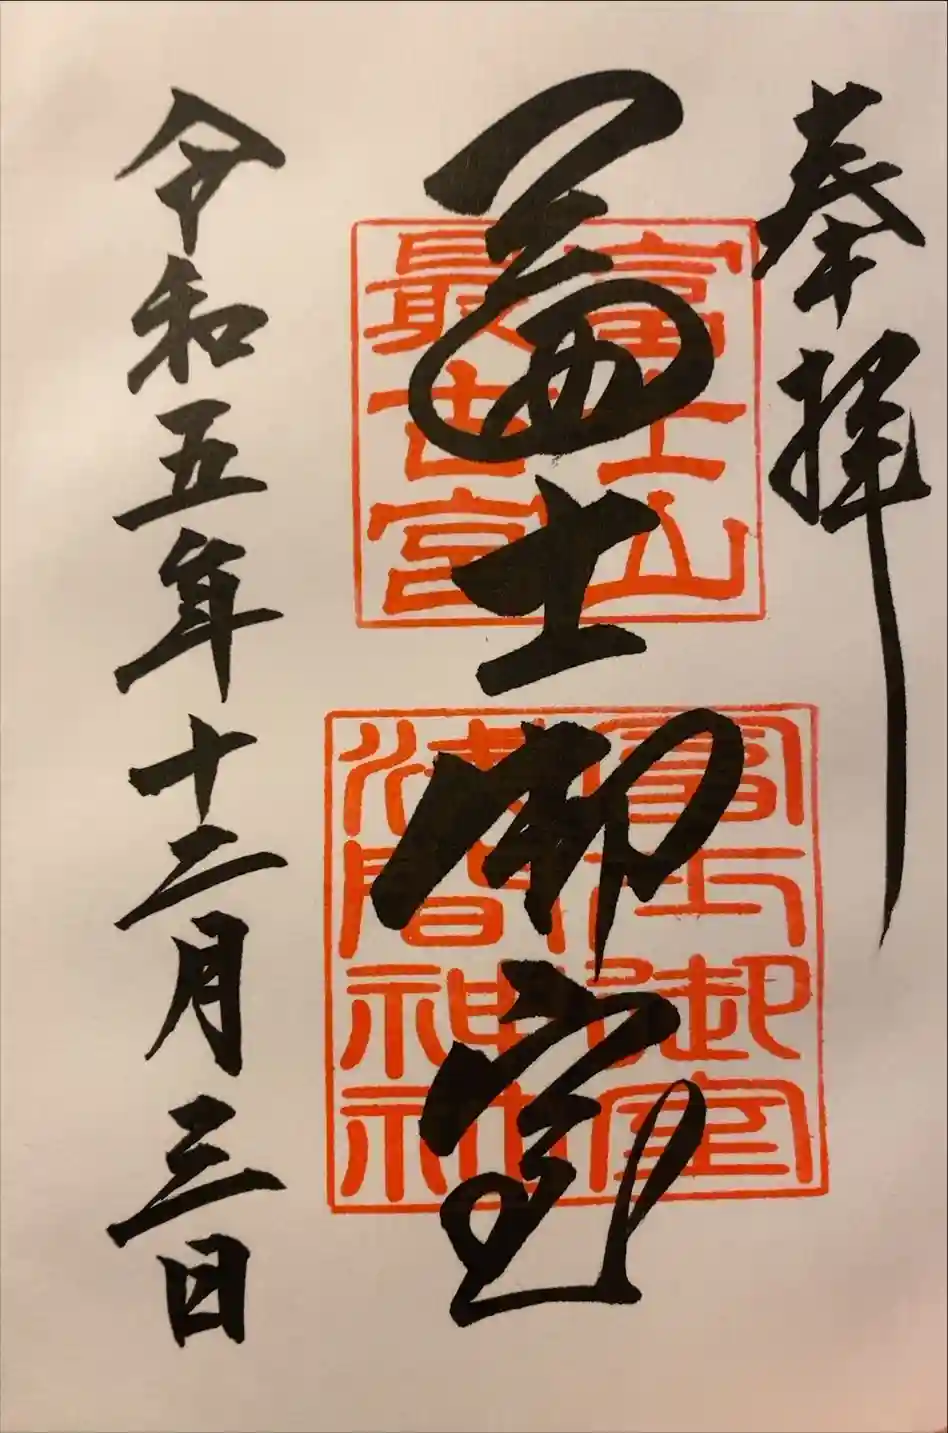 奉拝
冨士御室
令和五年十二月三日
富士山
最古宮
冨士御室
浅間神社